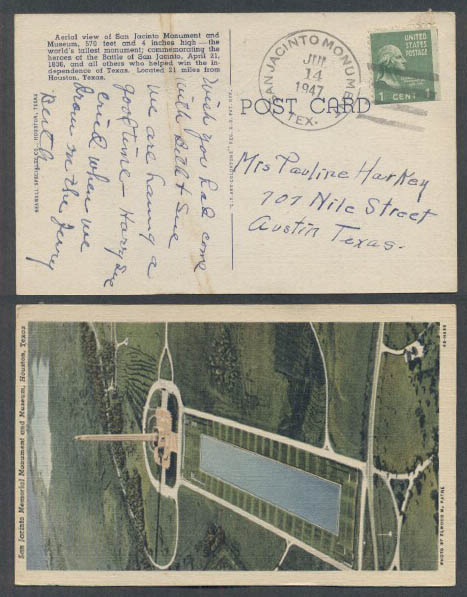 Aerial view of San Jacinto Monument and
Museum, 570 feet and 4 inches high — the
world's tallest monument; commemorating the
heroes of the Battle of San Jacinto, April 21,
1836, and all others who helped win the in-
dependence of Texas. Located 21 miles from
Houston, Texas.
SAN JACINTO MONUMENT
JUL
14
1947
TEX.
UNITED
STATES
POSTAGE
1 CENT 1
POST CARD
Mrs Pauline Harkey
707 Nile Street
Austin Texas.
Wish you had come
with Beth & Sue
We are having a
good time — Harry Lee
cried when we
drove on the ferry
HOUSTON, TEXAS
San Jacinto Memorial Monument and Museum, Houston, Texas
PHOTO BY ELWOOD M. PAYNE